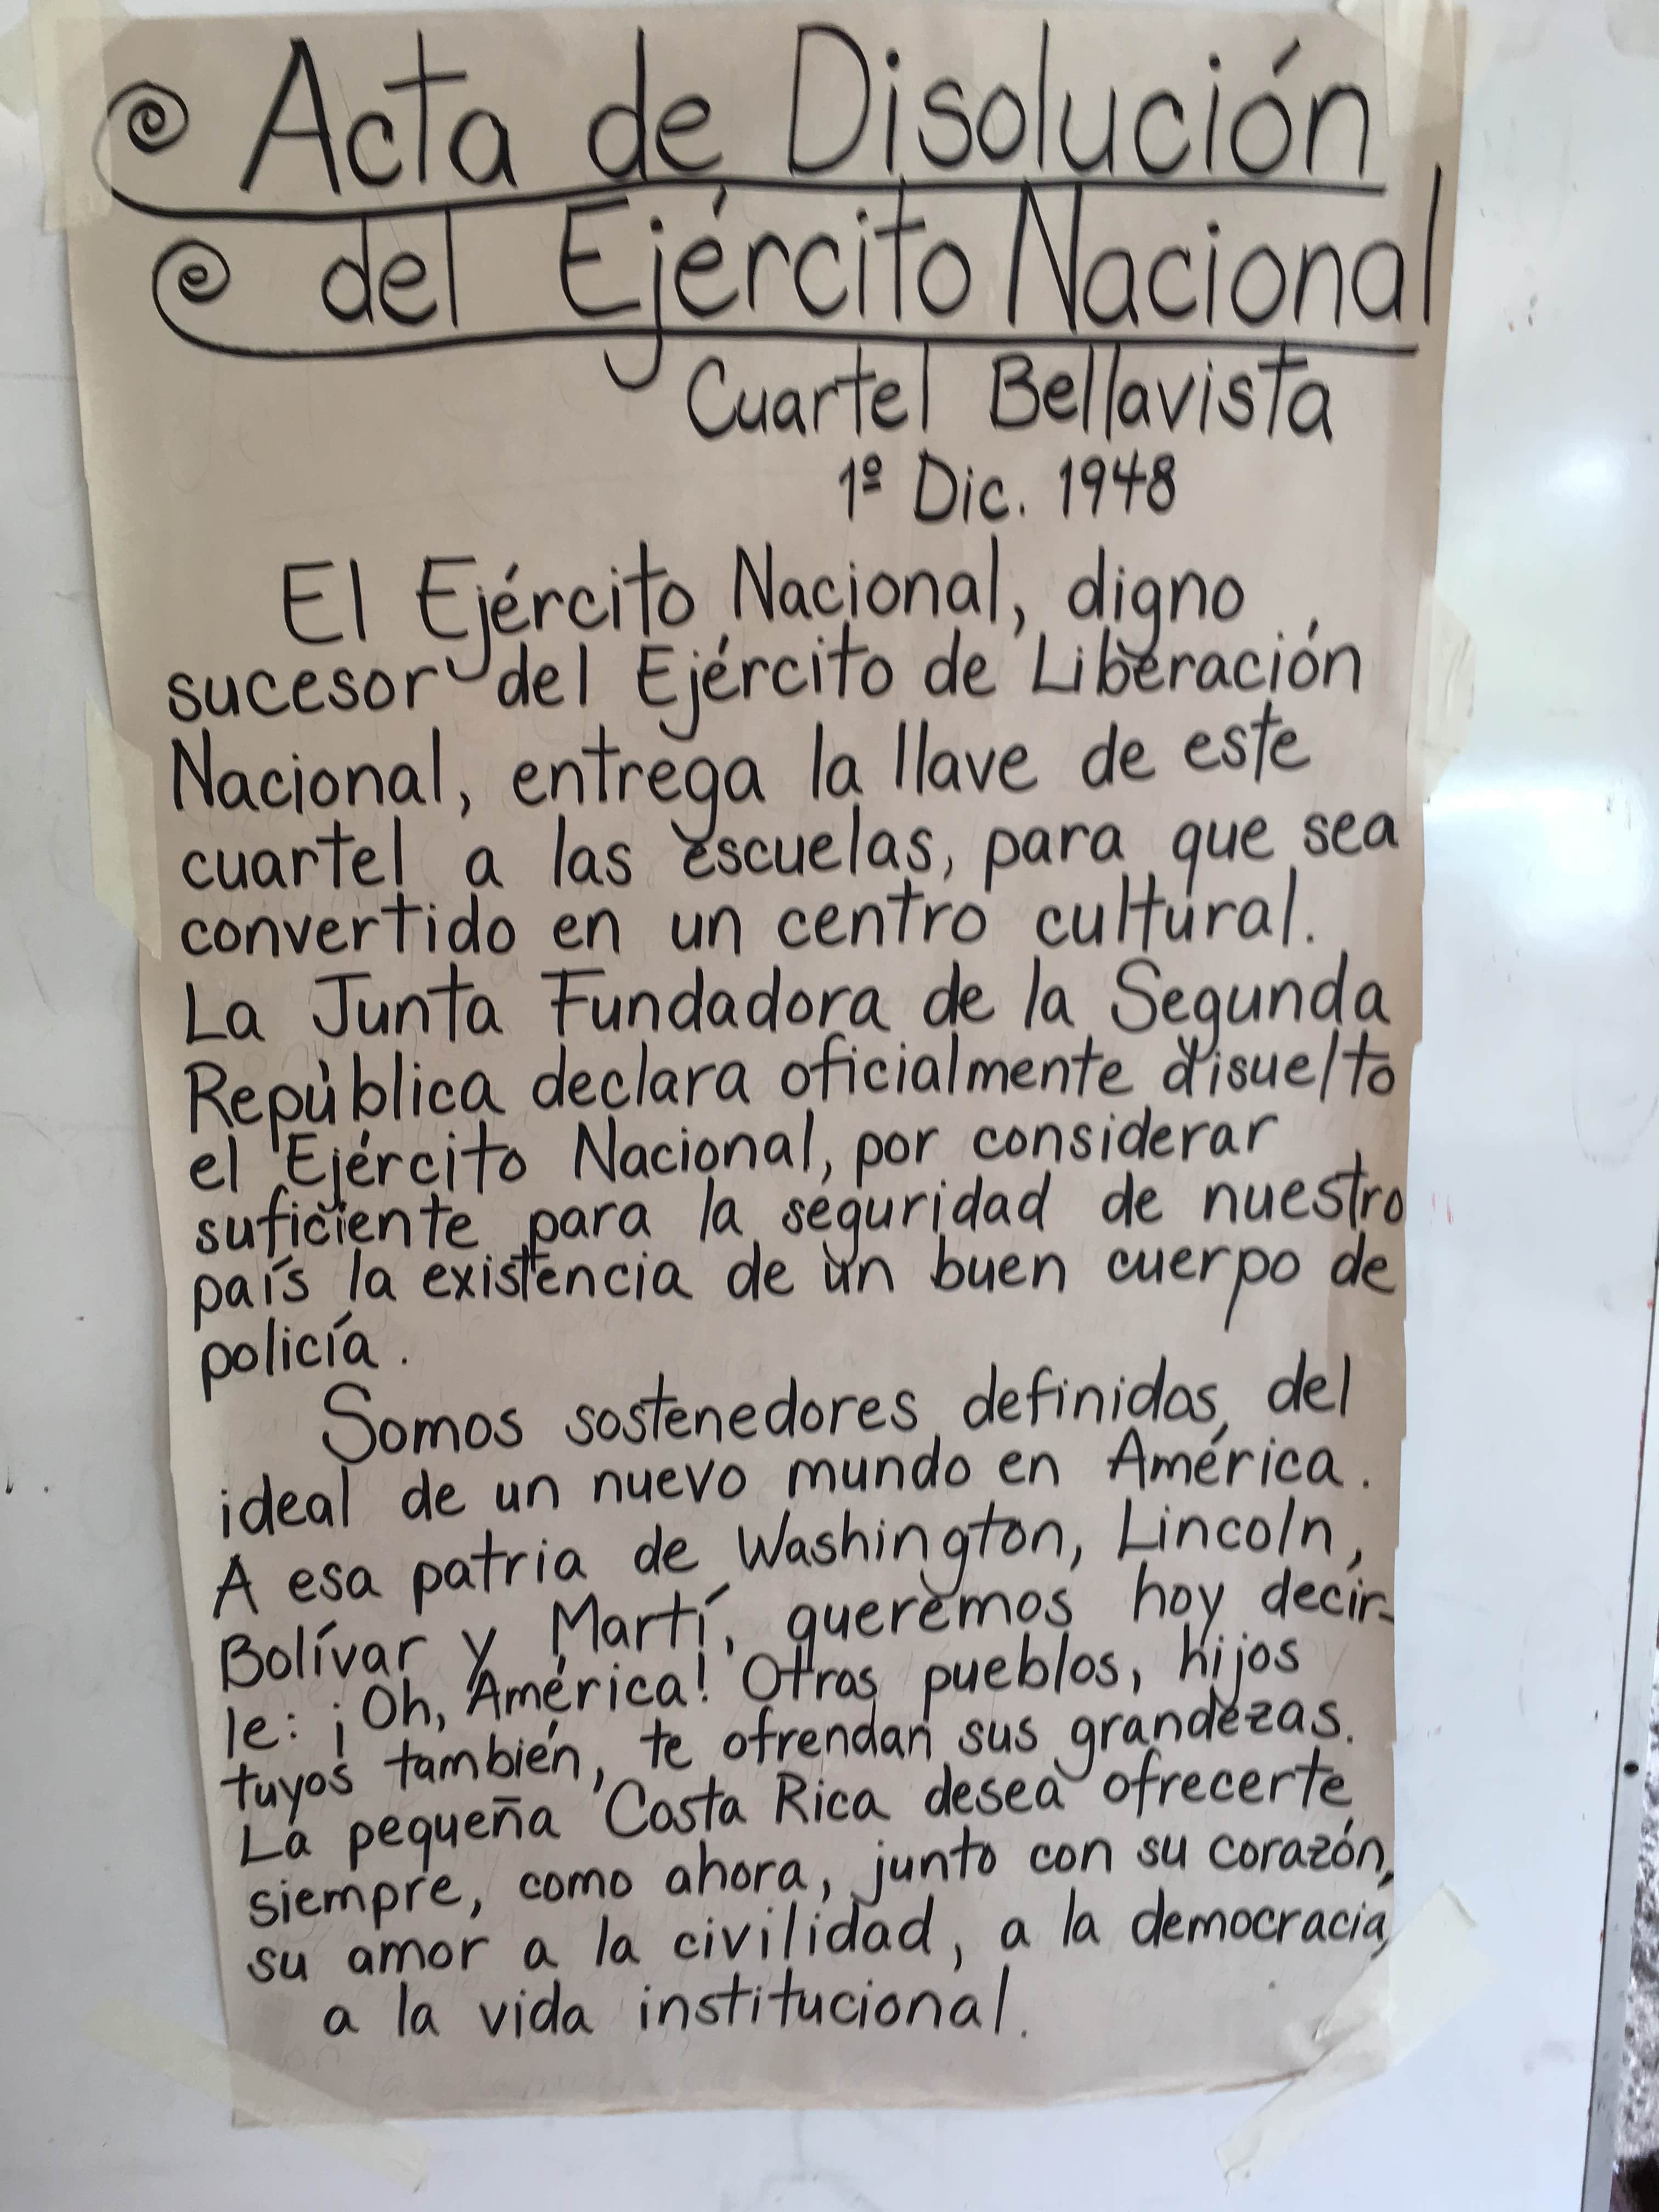 Acta de Disolución
del Ejército Nacional
Cuartel Bellavista
1º Dic. 1948
El Ejército Nacional, digno
sucesor del Ejército de Liberación
Nacional, entrega la llave de este
cuartel a las escuelas, para que sea
convertido en un centro cultural.
La Junta Fundadora de la Segunda
República declara oficialmente disuelto
el Ejército Nacional, por considerar
suficiente para la seguridad de nuestro
país la existencia de un buen cuerpo de
policía.
Somos sostenedores definidos del
ideal de un nuevo mundo en América.
A esa patria de Washington, Lincoln,
Bolívar y Martí, queremos hoy decir-
le: ¡Oh, América! Otros pueblos, hijos
tuyos también, te ofrendan sus grandezas.
La pequeña Costa Rica desea ofrecerte
siempre, como ahora, junto con su corazón,
su amor a la civilidad, a la democracia,
a la vida institucional.